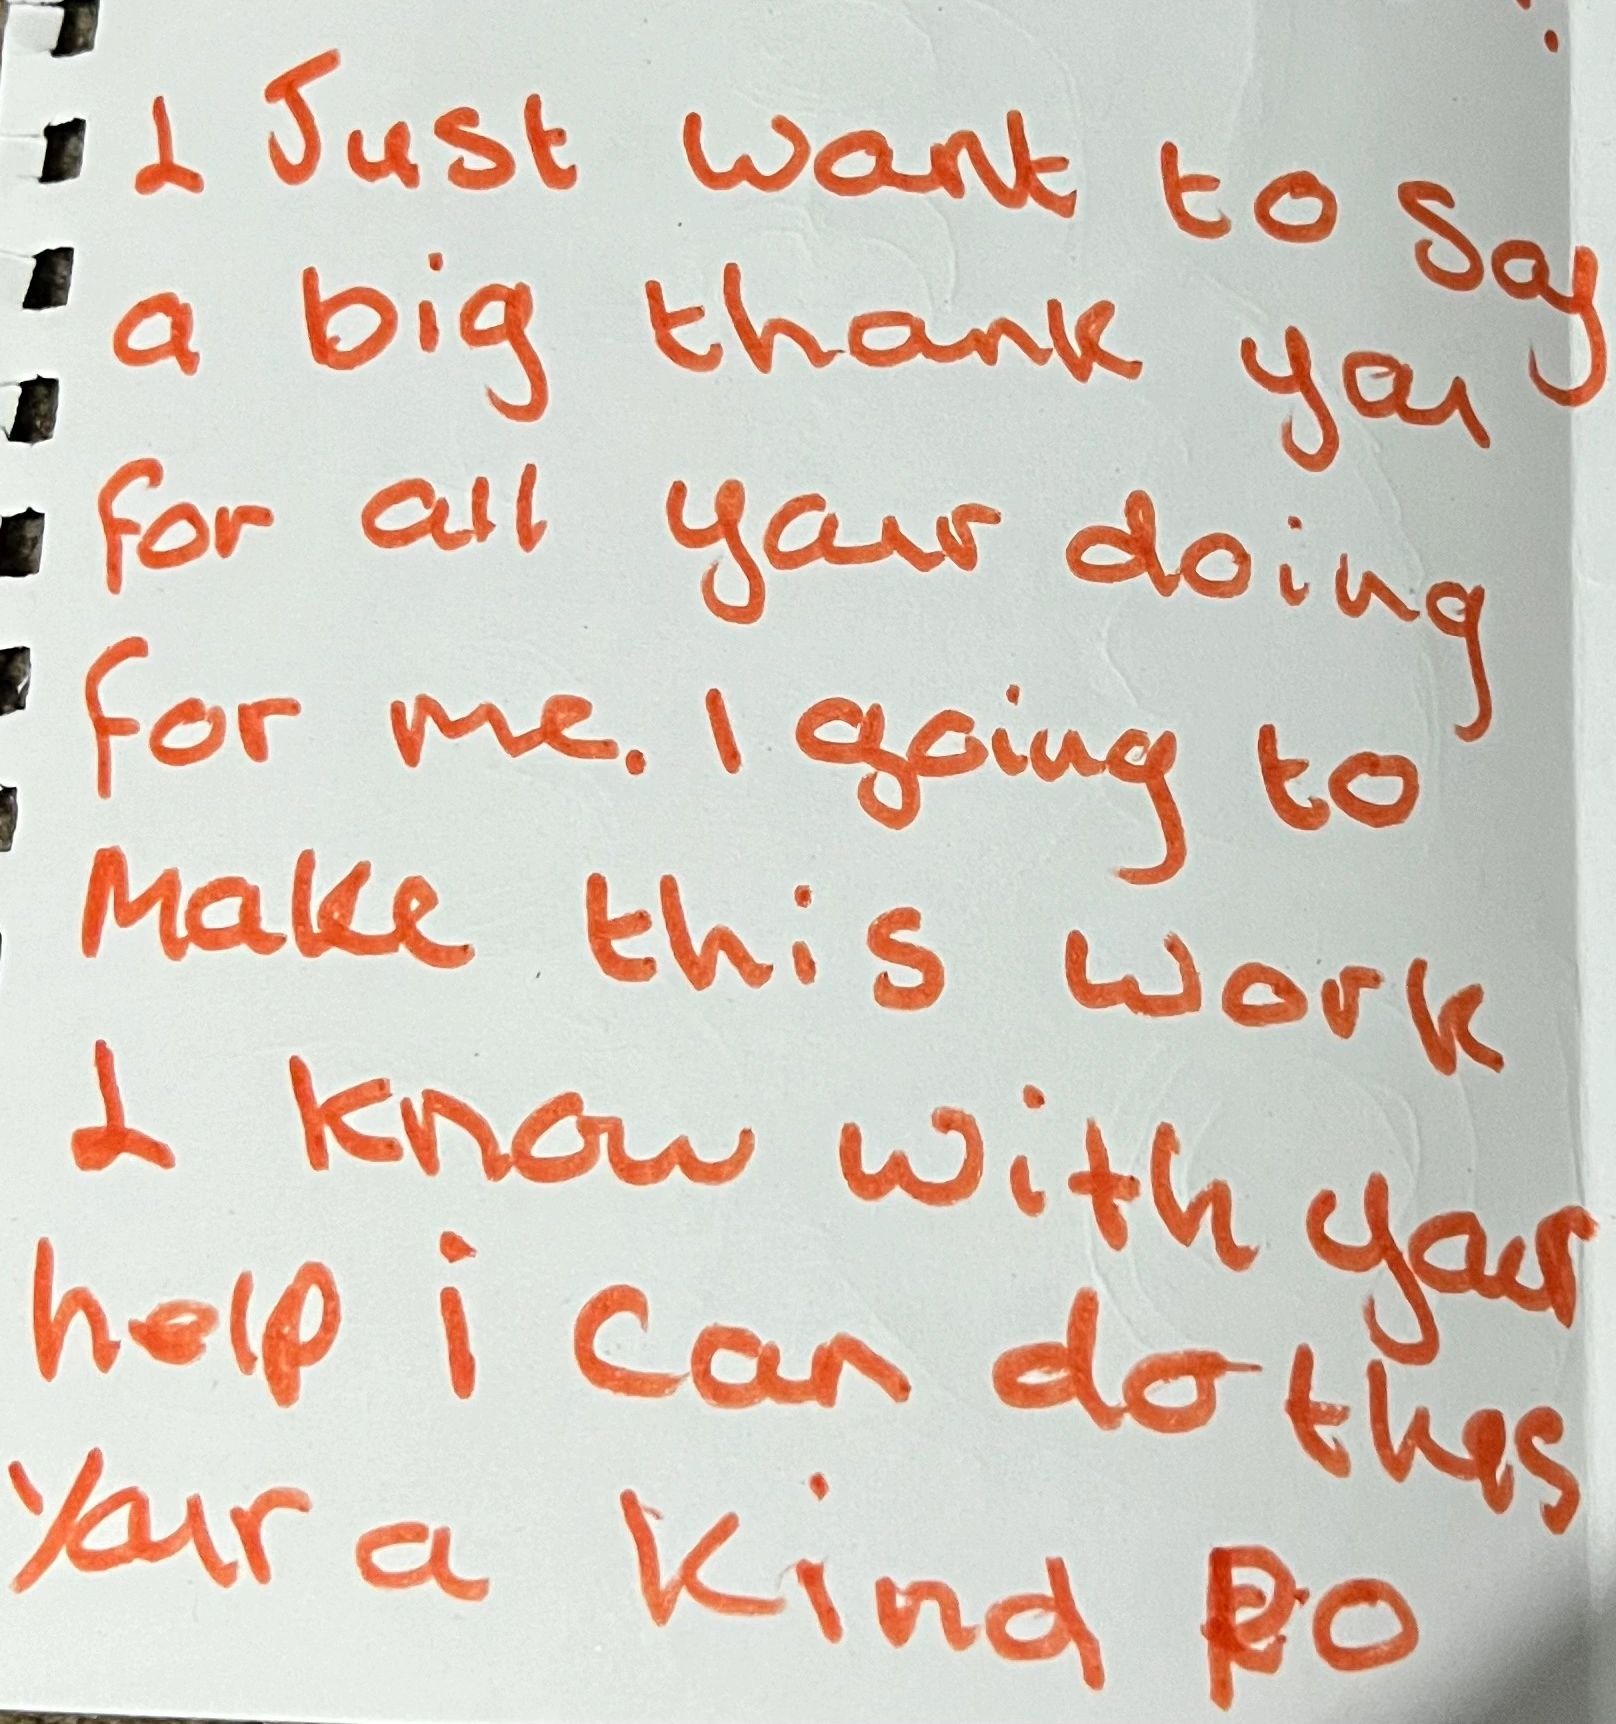 I Just want to say
a big thank you
for all your doing
for me. I going to
Make this work
I know with your
help i can do this
Your a Kind PO